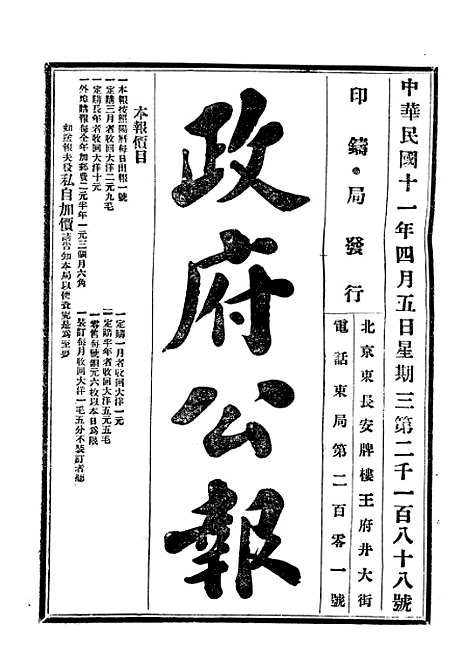 中華民國十一年四月五日星期三第二千一百八十八號
印鑄局發行
北京東長安牌樓王府井大街
電話東局第二百零一號
政府公報
本報價目
一本報按照陽曆每日出報一號
一定購三月者收回大洋二元九毛
一定購長年者收回大洋十元
一外埠購報每全年加郵費二元半年一元三個月六角
如送報夫役私自加價請告知本局以便查究是為至要
一定購一月者收回大洋一元
一定購半年者收回大洋五元五毛
一零售每號銅元六枚以本日為限
一裝訂每月收回大洋一毛五分不裝訂者聽